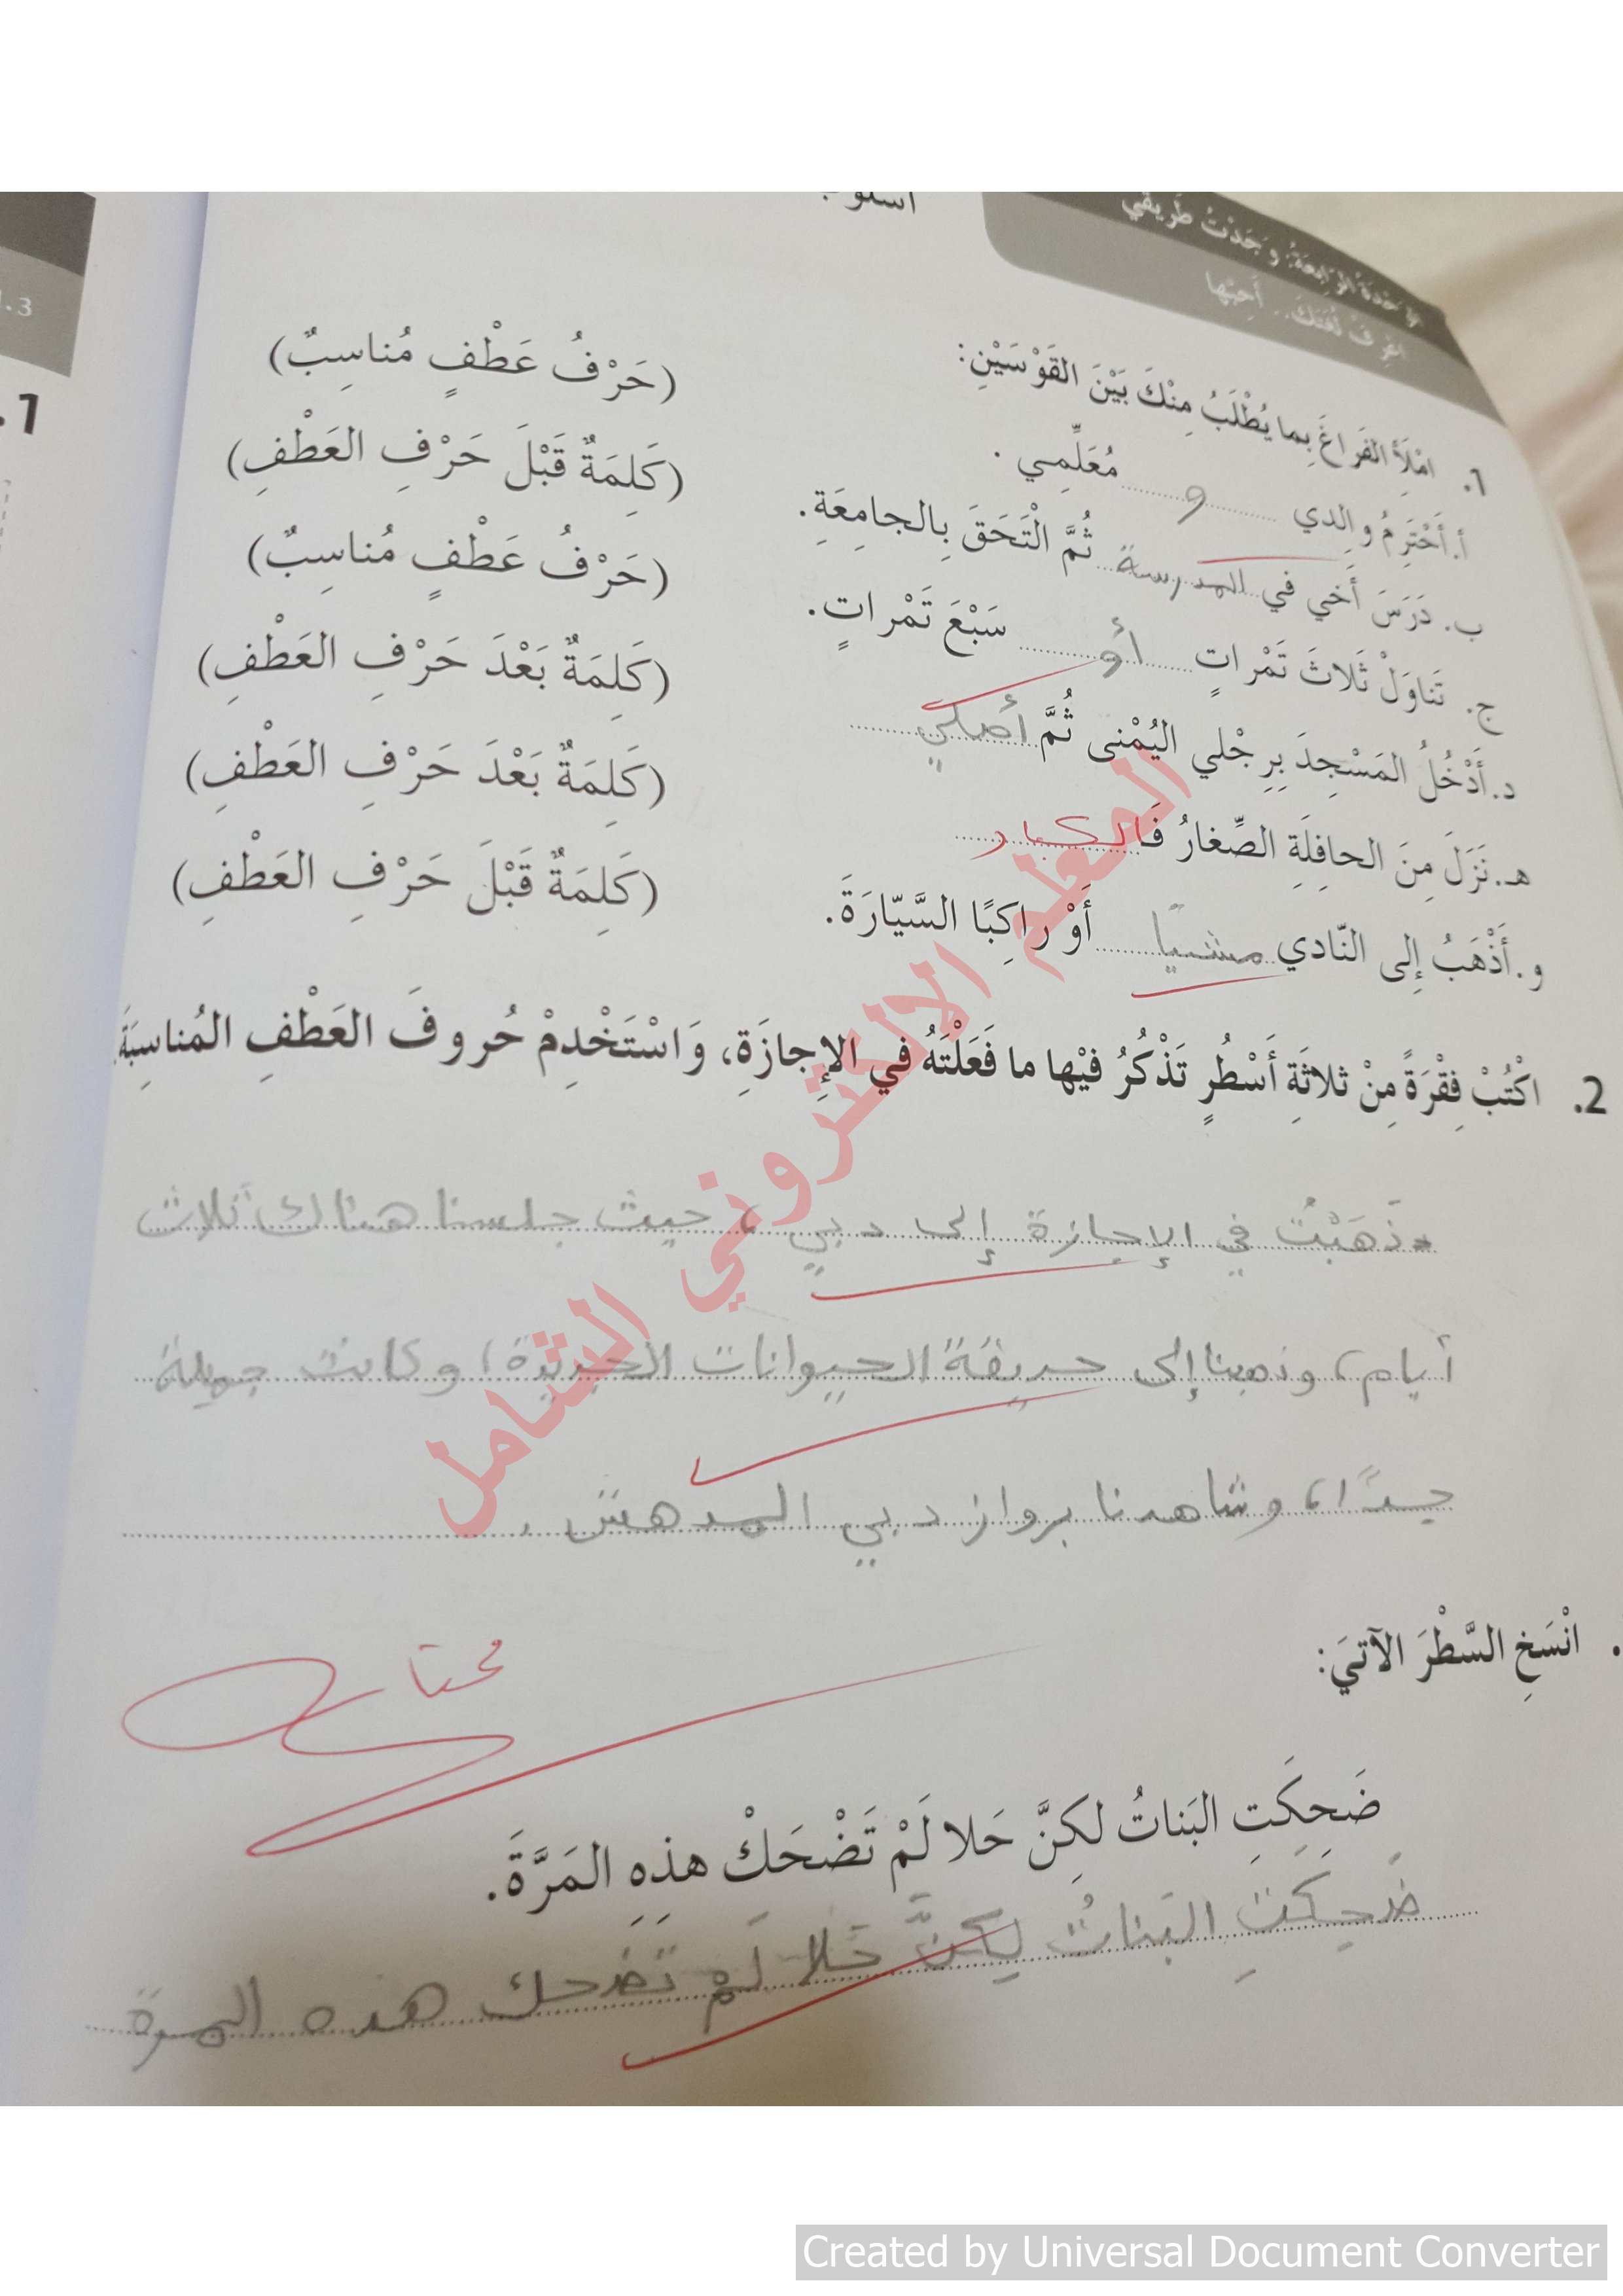 الوَحْدَةُ الرّابِعَةُ: وَجَدْتُ طَريقي
اعْرِفْ لُغَتَكَ.. أَحِبَّها
1.3
1.
1. امْلَأِ الفَراغَ بِما يُطْلَبُ مِنْكَ بَيْنَ القَوْسَيْنِ:
أ. أَحْتَرِمُ والِدي و مُعَلِّمي . (حَرْفُ عَطْفٍ مُناسِبٌ)
ب. دَرَسَ أَخي في المدرسة ثُمَّ الْتَحَقَ بِالجامِعَةِ. (كَلِمَةٌ قَبْلَ حَرْفِ العَطْفِ)
ج. تَناوَلْ ثَلاثَ تَمْراتٍ أو سَبْعَ تَمْراتٍ. (حَرْفُ عَطْفٍ مُناسِبٌ)
د. أَدْخُلُ المَسْجِدَ بِرِجْلي اليُمْنى ثُمَّ أصلي (كَلِمَةٌ بَعْدَ حَرْفِ العَطْفِ)
هـ. نَزَلَ مِنَ الحافِلَةِ الصِّغارُ فَالكبار (كَلِمَةٌ بَعْدَ حَرْفِ العَطْفِ)
و. أَذْهَبُ إِلى النّادي مشيًا أَوْ راكِبًا السَّيّارَةَ. (كَلِمَةٌ قَبْلَ حَرْفِ العَطْفِ)
2. اكْتُبْ فِقْرَةً مِنْ ثلاثَةِ أَسْطُرٍ تَذْكُرُ فيْها ما فَعَلْتَهُ في الإِجازَةِ، وَاسْتَخْدِمْ حُروفَ العَطْفِ المُناسِبَةَ.
ذَهَبْتُ في الإجازة إلى دبي، حيث جلسنا هناك ثلاث
أيام، وذهبنا إلى حديقة الحيوانات الجديدة، وكانت جميلة
جدًا، وشاهدنا برواز دبي المدهش.
. انْسَخِ السَّطْرَ الآتيَ:
ضَحِكَتِ البَناتُ لكِنَّ حَلا لَمْ تَضْحَكْ هذِهِ المَرَّةَ.
ضَحِكَتِ البَناتُ لكِنَّ حَلا لَمْ تَضحك هذه المرة
المعلم الالكتروني الشامل
Created by Universal Document Converter